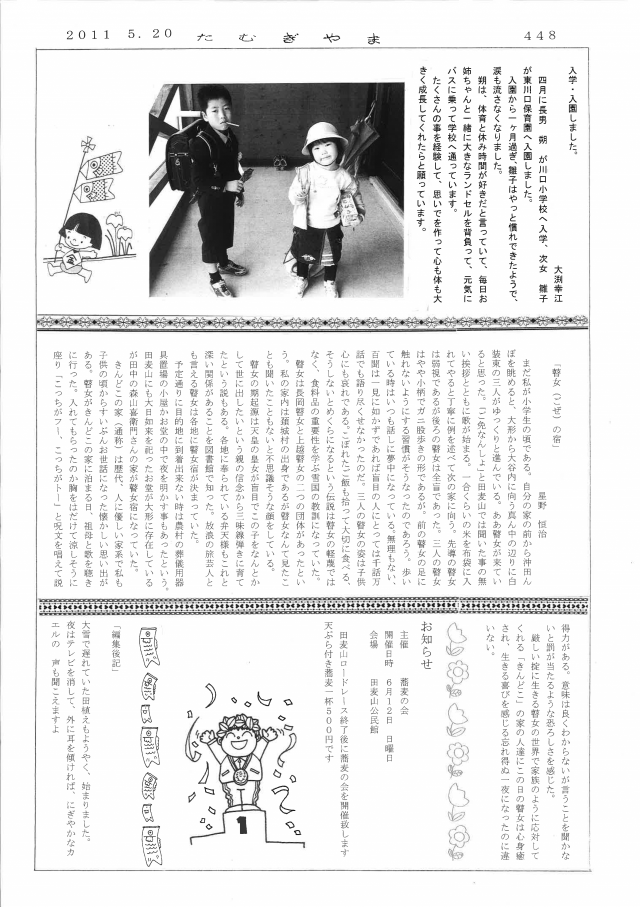 2011 5.20 たむぎやま 448
入学・入園しました。
大渕幸江
四月に長男 朔 が川口小学校へ入学、次女 雛子
が東川口保育園へ入園しました。
入園から一ヶ月過ぎ、雛子はやっと慣れできたようで、
涙も流さなくなりました。
朔は、体育と休み時間が好きだと言っていて、毎日お
姉ちゃんと一緒に大きなランドセルを背負って、元気に
バスに乗って学校へ通っています。
たくさんの事を経験して、思いでを作って心も体も大
きく成長してくれたらと願っています。
「瞽女(ごぜ)の宿」
星野 恒治
まだ私が小学生の頃である。自分の家の前から沖田ん
ぼを眺めると、大形から大谷内に向う真ん中の辺りに白
装束の三人がゆっくりと進んでいる。ああ瞽女が来てい
ると思った。「ご免なんしょ」と田麦山では聞いた事の無
い挨拶とともに歌が始まる。一合くらいの米を布袋に入
れてやると丁寧に例を述べて次の家に向う。先導の瞽女
は弱視であるが後ろの瞽女は全盲であった。三人の瞽女
はやや小柄でガニ股歩きの形であるが。前の瞽女の足に
触れないようにする習慣がそうなったのであろう。歩い
ている時はいつも話しに夢中になっている。無理もない、
百聞は一見に如かずであれば盲目の人にとっては千話万
話でも語り尽くせなかったのだ。三人の瞽女の姿は子供
心にも哀れである。こぼれたご飯も拾って大切に食べる、
そうしないとめくらになるという伝説は瞽女の軽蔑では
なく、食料品の重要性を学ぶ雪国の教訓になっていた。
瞽女は長岡瞽女と上越瞽女の二つの団体があったとい
う。私の家内は頚城村の出身であるが瞽女なんて見たこ
とも聞いたこともないと不思議そうな顔をしている。
瞽女の期起源は天皇の皇女が盲目でこの子をなんとか
して世に出したいという親の信念から三味線弾きに育て
たという説もある。各地に奉られている弁天様もこれと
深い関係があることを図書館で知った。放浪の旅芸人と
も言える瞽女は各地に瞽女宿が決まっていた。
予定通りに目的地に到着出来ない時は農村の葬儀用器
具置場の小屋かお堂の中で夜を明かす事もあったという。
田麦山にも大日如来を祀ったお堂が大形に存在している
が田中の森山喜衛門さんの家が瞽女宿になっていた。
きんどこの家(通称)は歴代、人に優しい家系で私も
子供の頃からずいぶんお世話になった懐かしい思い出が
ある。瞽女がきんどこの家に泊まる日、祖母と歌を聴き
に行った。入れてもらったのか胸をはだけて涼しそうに
座り「こっちがフー、こっちがトー」と呪文を唱えて説
得力がある。意味は良くわからないが言うことを聞かな
いと罰が当たるような恐ろしさを感じた。
厳しい掟に生きる瞽女の世界で家族のように応対して
くれる「きんどこ」の家の人達にこの日の瞽女は心身癒
され、生きる喜びを感じる忘れ得ぬ一夜になったのに違
いない。
お知らせ
主催 蕎麦の会
開催日時 6月12日 日曜日
会場 田麦山公民館
田麦山ロードレース終了後に蕎麦の会を開催致します
天ぷら付き蕎麦一杯500円です
1
「編集後記」
大雪で遅れていた田植えもようやく、始まりました。
夜はテレビを消して、外に耳を傾ければ、にぎやかなカ
エルの 声も聞こえますよ